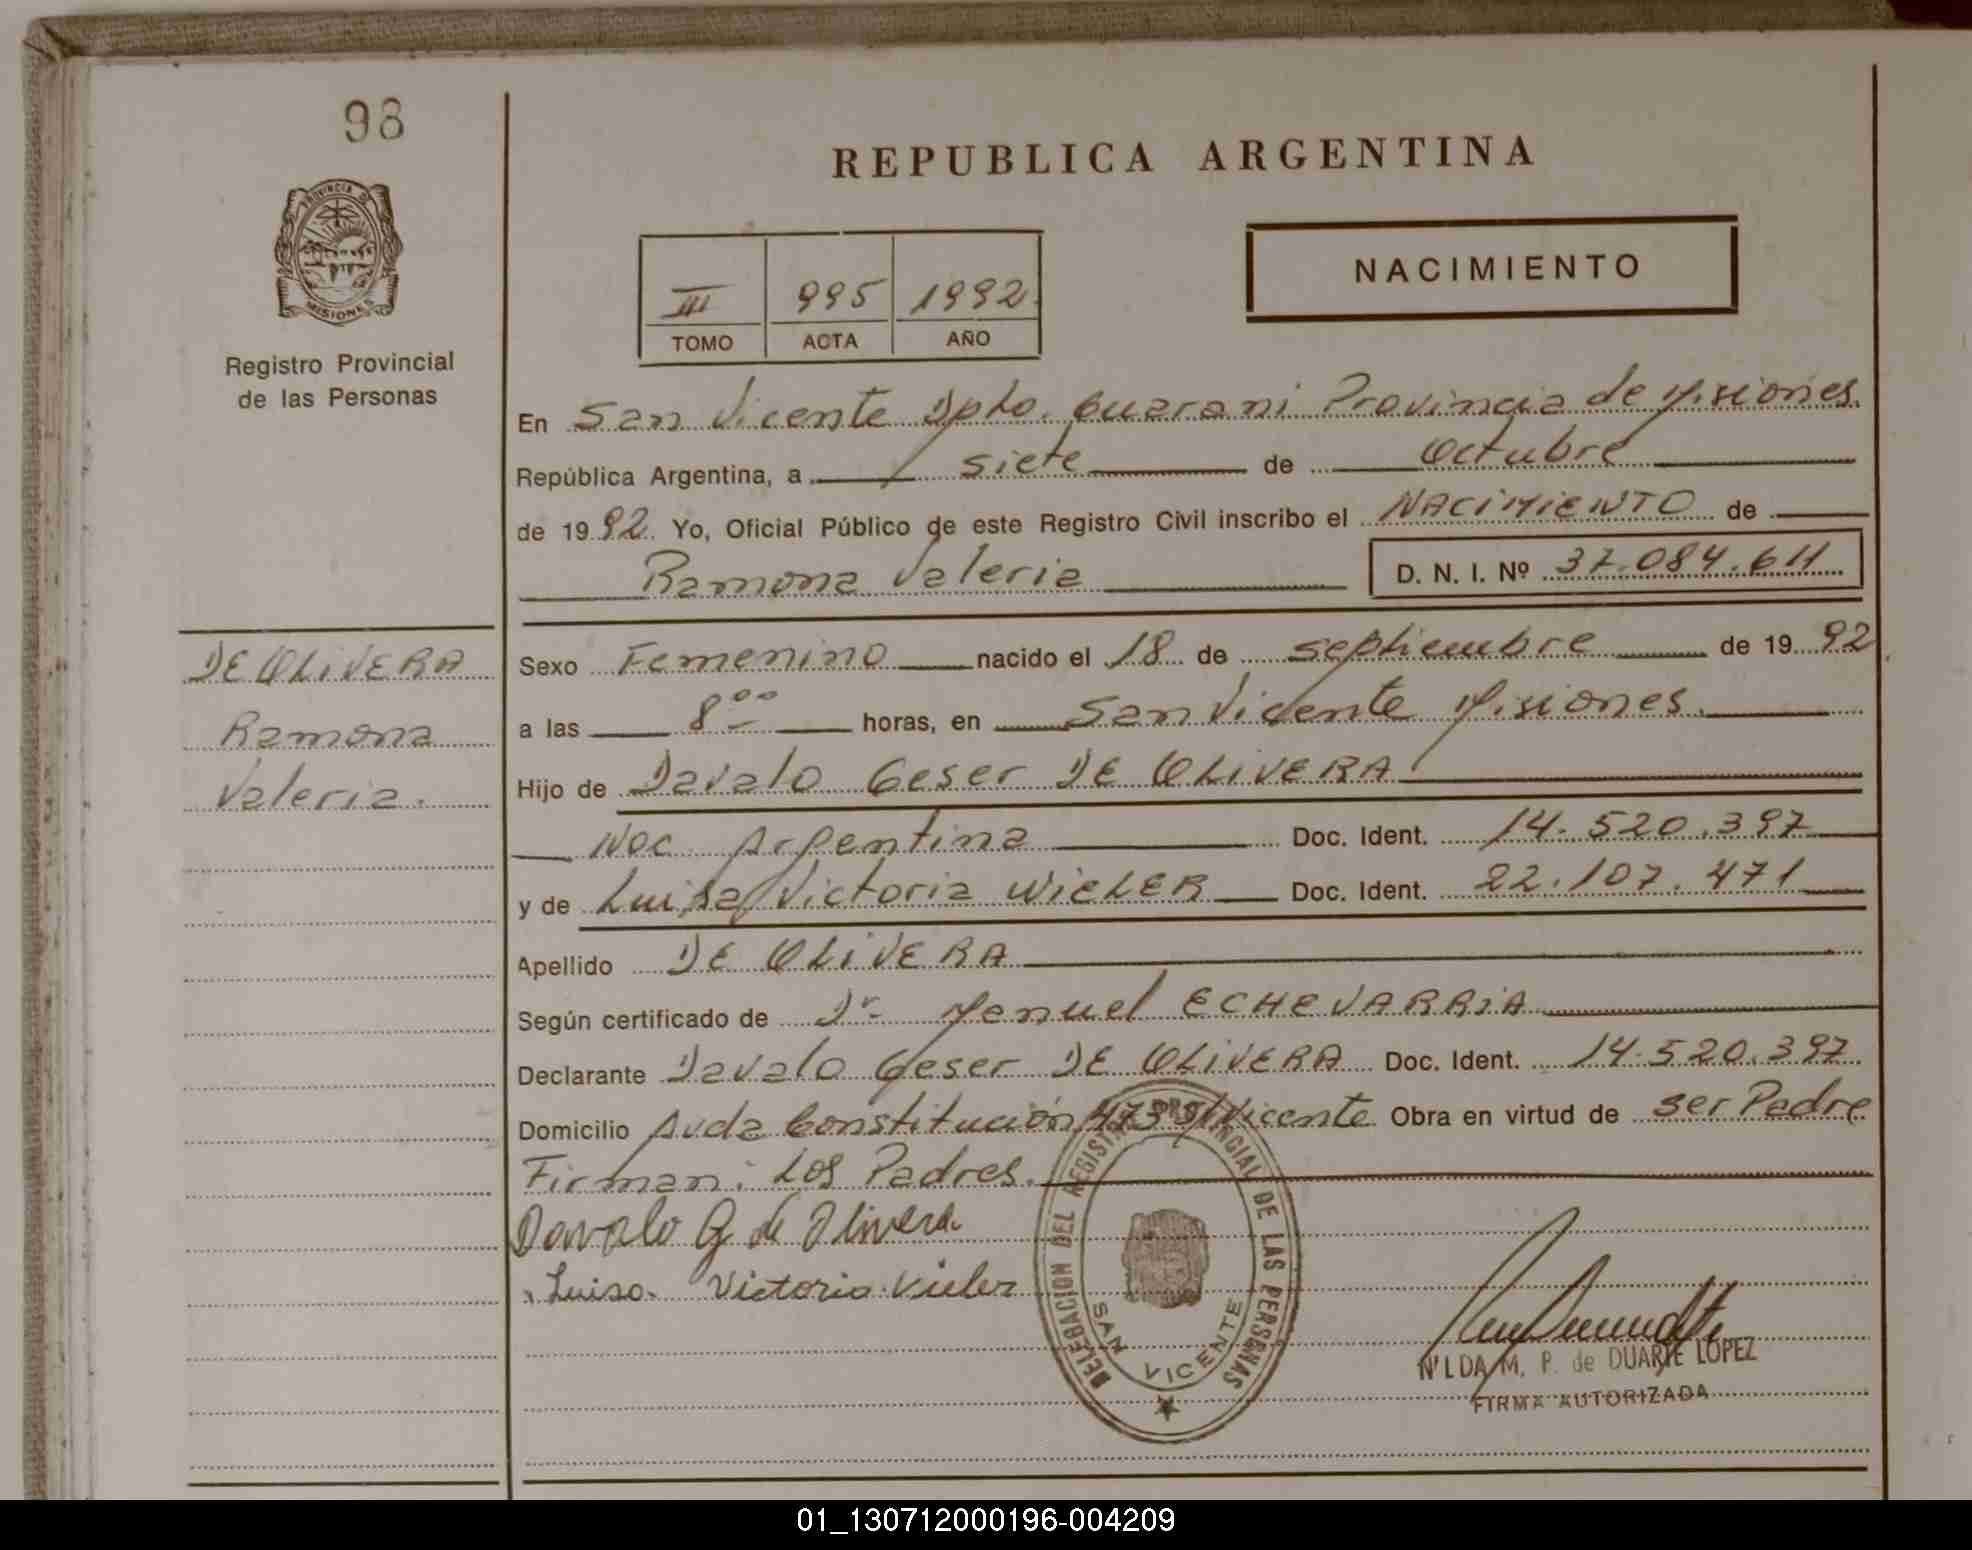 98
REPUBLICA ARGENTINA
PROVINCIA DE
MISIONES
Registro Provincial
de las Personas
NACIMIENTO
III 995 1992
TOMO ACTA AÑO
En San Vicente Dpto. Guarani Provincia de Misiones
República Argentina, a siete de Octubre
de 1992. Yo, Oficial Público de este Registro Civil inscribo el NACIMIENTO de
Ramona Valeria D. N. I. Nº 37.084.611
DE OLIVERA
Ramona
Valeria.
Sexo Femenino nacido el 18 de septiembre de 1992
a las 8 ºº horas, en San Vicente Misiones.
Hijo de Davalo Geser DE OLIVERA
Nac. Argentina Doc. Ident. 14.520.397
y de Luisa Victoria WIELER Doc. Ident. 22.107.471
Apellido DE OLIVERA
Según certificado de Dr. Manuel ECHEVARRIA
Declarante Davalo Geser DE OLIVERA Doc. Ident. 14.520.397
Domicilio Avda Constitución 473 S/Vicente Obra en virtud de ser Padre
Firman: Los Padres.
Davalo G de Olivera
Luisa Victoria Vieler
DELEGACION DEL REGISTRO PROVINCIAL DE LAS PERSONAS
SAN VICENTE
NILDA M. P. de DUARTE LOPEZ
FIRMA AUTORIZADA
01_130712000196-004209